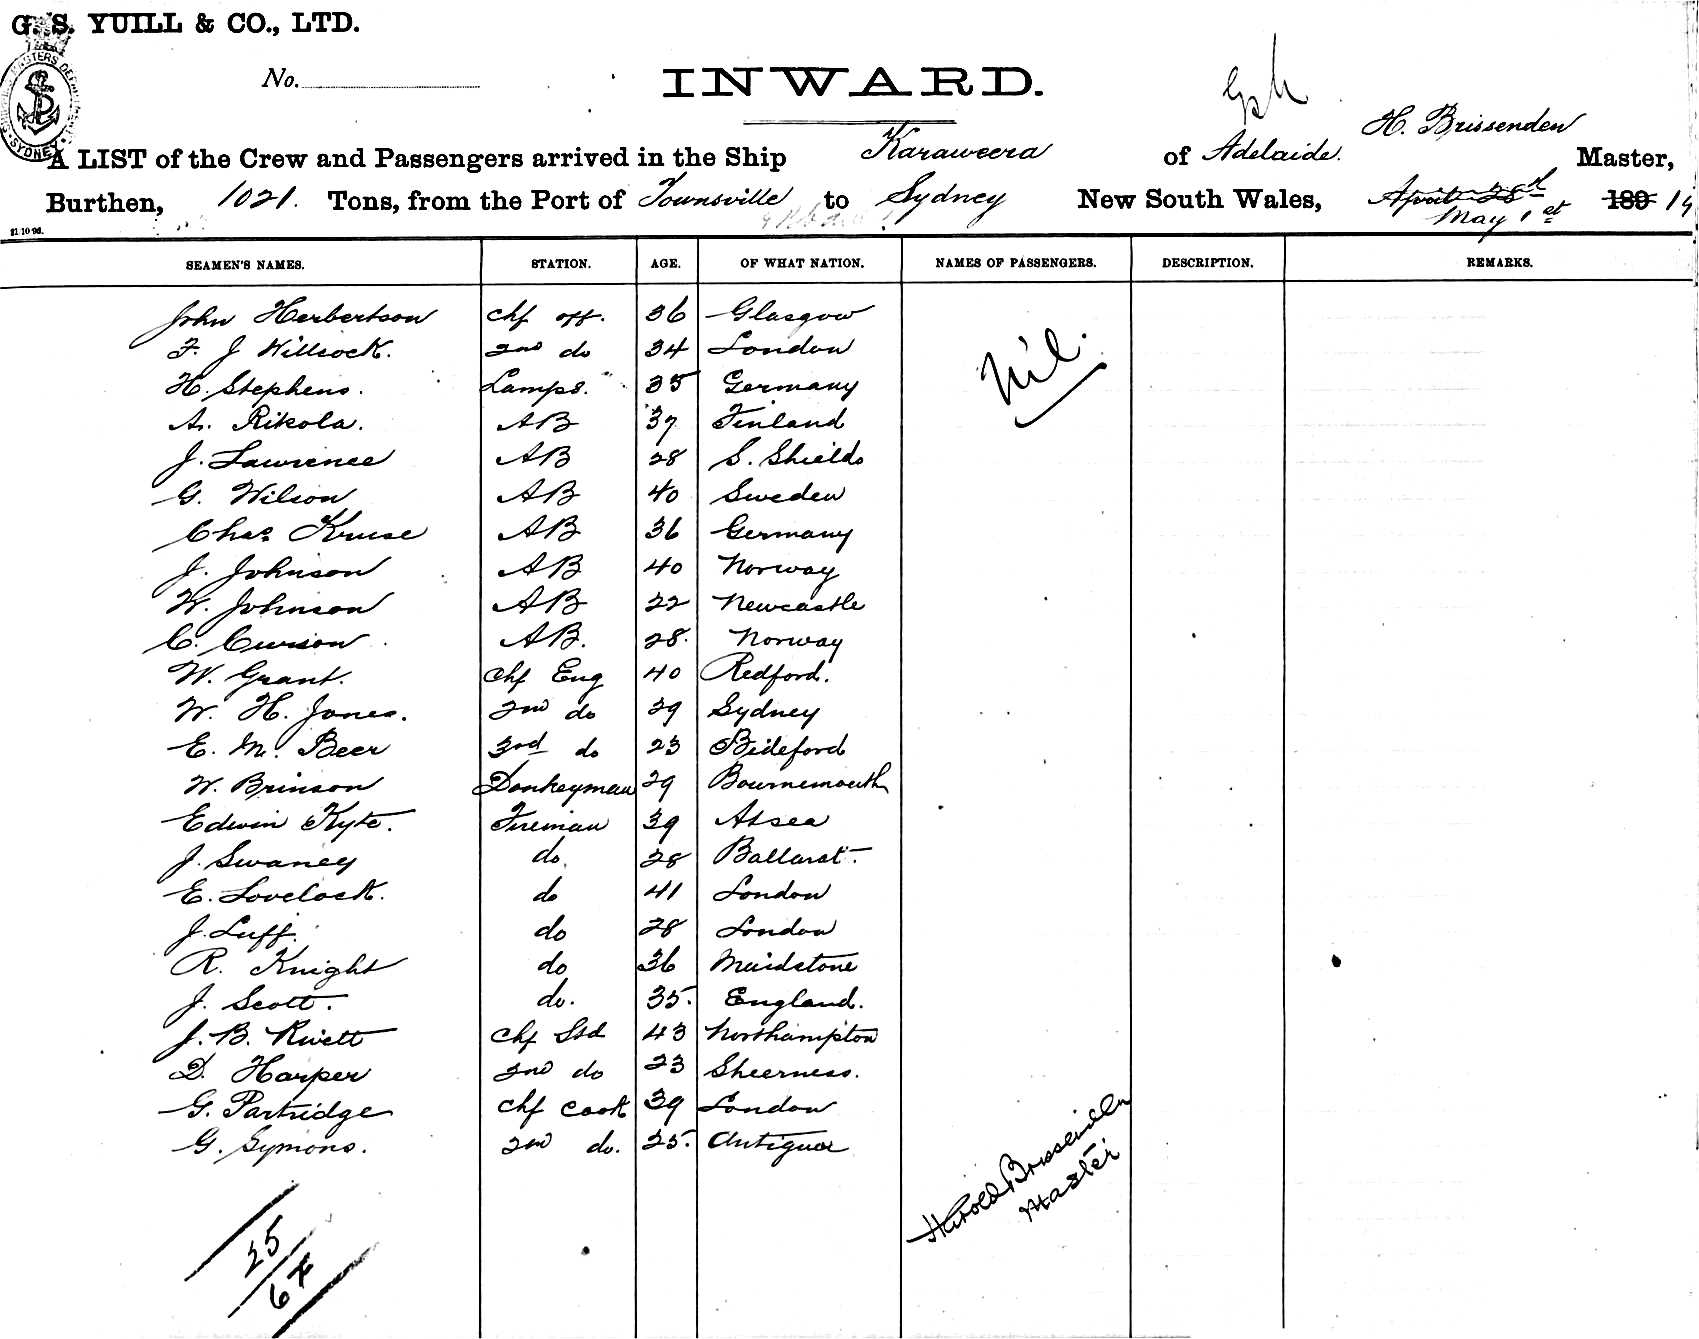 G. S. YUILL & CO., LTD.
No.
INWARD.
H. Brissenden
A LIST of the Crew and Passengers arrived in the Ship Karaweera of Adelaide. Master,
Burthen, 1021. Tons, from the Port of Townsville to Sydney New South Wales, April 28th 189 19
May 1st
21 10 98.
SEAMEN'S NAMES. STATION. AGE. OF WHAT NATION. NAMES OF PASSENGERS. DESCRIPTION. REMARKS.
John Herbertson Chf off. 36 Glasgow
F. J Willcock. 2nd do 34 London
Nil.
H. Stephens. Lamps. 35 Germany
A. Rikola. AB 37 Finland
J. Lawrence AB 28 S. Shields
G. Wilson AB 40 Sweden
Chas Kruse AB 36 Germany
J. Johnson AB 40 Norway
W. Johnson AB 22 Newcastle
C. Curson AB. 28. Norway
W. Grant. Chf Eng 40 Redford.
W. H. Jones. 2nd do 29 Sydney
E. M. Beer 3rd do 23 Bideford
W. Brinson Donkeyman 29 Bournemouth
Edwin Kyte. Fireman 39 At sea
J. Swaney do. 28 Ballarat.
E. Lovelock. do 41 London
J. Luff. do 28 London
R. Knight do 36 Maidstone
J. Scott. do. 35. England.
J. B. Rivett Chf Std 43 Northampton
D. Harper 2nd do 23 Sheerness.
G. Partridge Chf Cook 39 London
G. Symons. 2nd do. 25. Antigua
Harold Brissenden
Master
25
67
SYDNEY